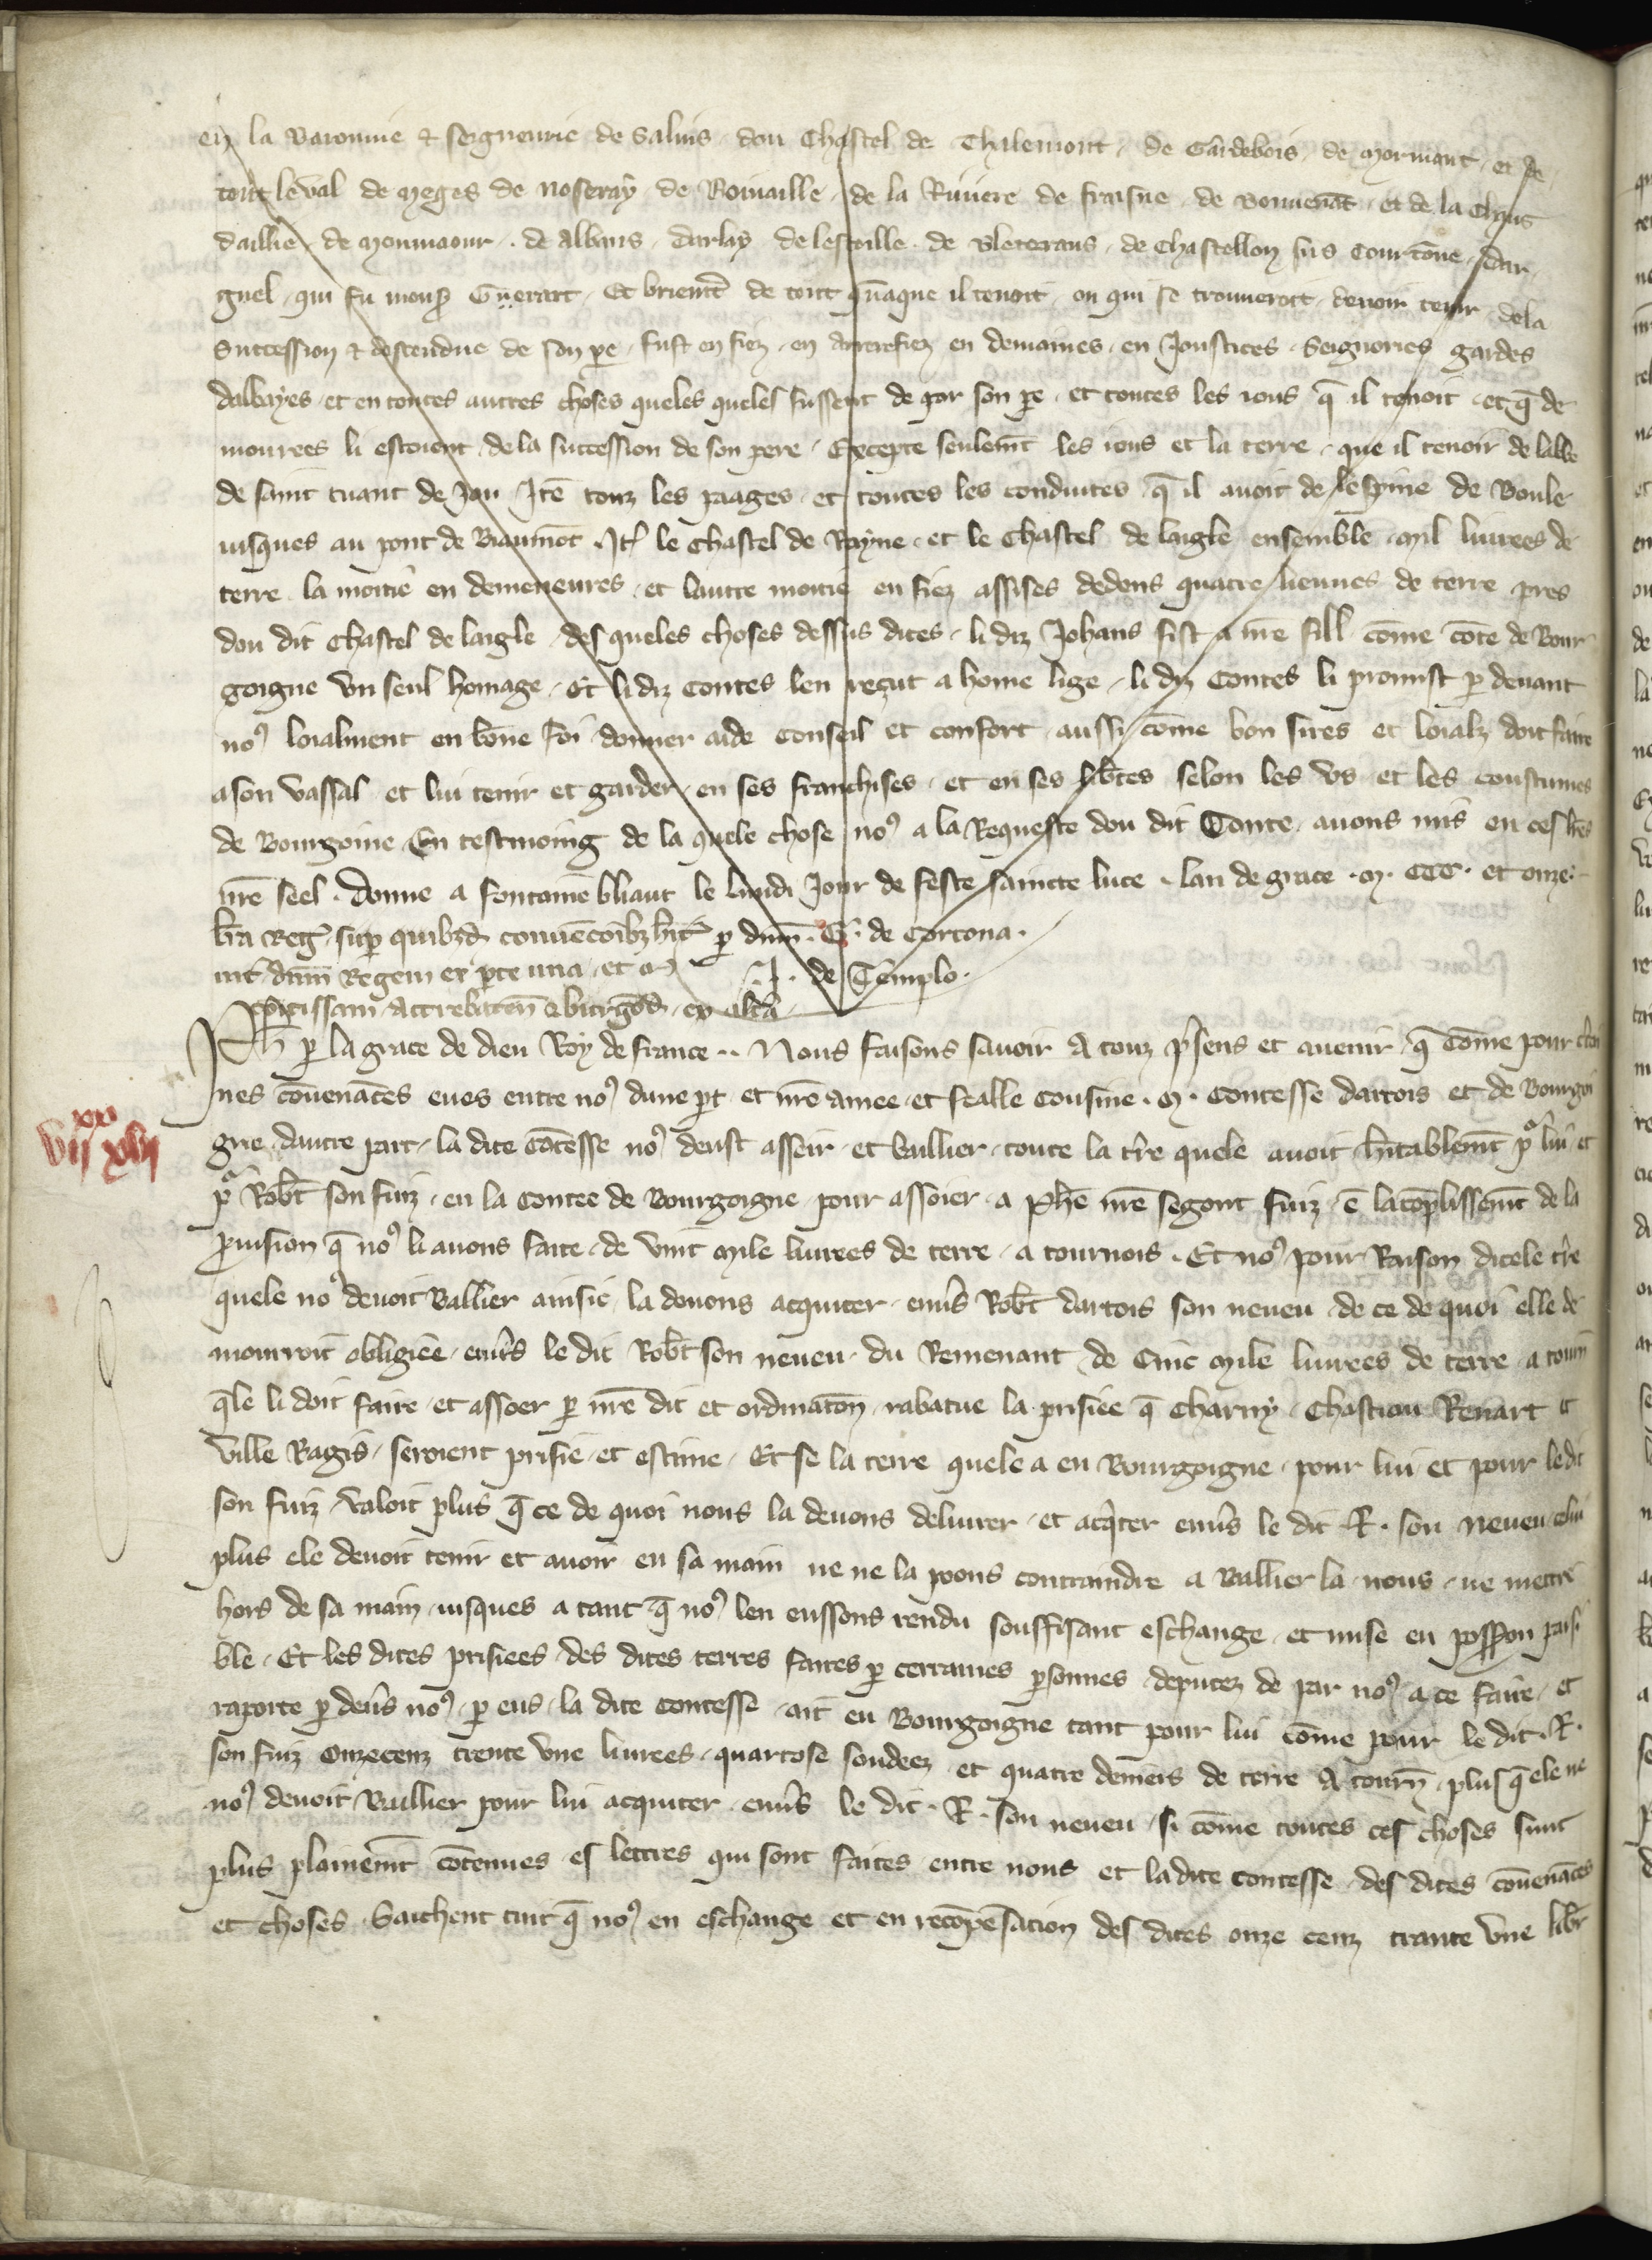 en la Baronnie & seigneurie de Salins . dou Chastel de Thalemont . de Gardebois . de mormant . et de
tout le val de meges de noseray . de Romaille . de la Riviere de fraisne . de Bonuenāt . et de la Chaus
daillie . de monmaour . de Albans . darlay de lestoille . de Bleterans . de Chastellon sus Courtōne . dar
guel . qui fu mons Guerart . Et briemt de tout quāque il tenoit . ou qui se trouueroit . deuoir tenir . de la
Succession & descendue de son pe . fust en fiez . en arrerefiez en demaines . en Joustices . Seignories gardes
dabayes . et en toutes autres choses queles queles fussent de par son pe . et toutes les rous q̄ il tenoit . et q̄ de
mourees li estoient . de la succession de son pere . Excepte seulemt les rous et la terre . que il tenoir de labbe
de saint tuant de Jou . Itē touz les paages . et toutes les conduites . q̄ il auoit de lespine de Boule
iusques au pont de Biaumōt . It le Chastel de Rayne . et le Chastel de laigle ensemble . mil liurees de
terre . la moitie en demeneures . et lautre moitie en fiez assises dedens quatre lieuues de terre pres
dou dit Chastel de laigle . des queles choses dessus dites . li diz Johans fist a nre fill cōme cōte de Bour
goigne vn seul homage . Et li diz contes len reçut a home lige . li diz Contes li promist p deuant
no9 loialment en bōne foi donner aide conseil et confort . aussi cōme bon sires et loialz doit faire
a son vassal et lui tenir et garder . en ses franchises . et en ses libtes selon les vs et les coustumes
de Bourgoine En tesmoing de la quele chose no9 a la Requeste dou dit Conte . auons mis en ces lres
nrē seel . Donne a fontainēbliaut le lundi Jour de feste saincte luce . lan de grace . M . CCC . et onze .
lra Reg . sup quibzd conuēcoibz hit p dnm . G . de Cortona .
int dnm Regem ex pte una . et
J . de Templo .
comitissam Attrebaten & burgōd . ex alta
Ph p la grace de dieu Roy de france . . Nous faisons sauoir A touz psens et auenir . q̄ Cōme pour ctai
nes cōuenāces eues entre no9 dune pt et nrē amee . et fealle cousine . M . Contesse dartois et de Bourgoi
gne . dautre part . la dite cōtesse no9 deust asseir . et baillier . toute la tre quele auoit hitablemt p lui et
p Robt son fuiz . en la Contee de Bourgoigne . pour assoier . a Phe nrē segont fuiz . ē lacōplissemt de la
puision q̄ no9 li auons faite . de vint mile liurees de terre . a tournois . Et no9 pour Raison dicele tre
quele no9 deuoit Baillier ainsic . la deuons acquiter . enūs Robt dartois son neueu . de ce de quoi elle de
mouroit obligiee . enūs le dit Robt son neueu . du Remenant de Cinc mile liurees de terre a tourn
q̄le li doit faire . et assoer p nrē dit et ordinatōn . rabatue la prisiee q̄ Charny . Chastiau Renart et
ville Ragis . seroient prisie . et estime . Et se la terre quele a en Bourgoigne . pour lui et pour le dit
son fuiz . valoit plus q̄ ce de quoi nous la deuons deliurer . et acqter enūs le dit . R . son neueu . celui
plus ele deuoit tenir et auoir en sa main ne ne la poons contraindre a Baillier la nous . ne mettre
hors de sa main . iusques a tant q̄ no9 len eussons rendu souffisant eschange . et mise en possōn paisi
ble . Et les dites prisiees des dites terres faites p certaines psonnes deputez de par no9 a ce faire . et
raporte p deūs no9 . p eus . la dite contesse . ait en Bourgoigne tant pour lui cōme pour le dit . R .
son fuiz onzecenz trente vne liurees . quatorse soudees et quatre deniers de terre A tourn . plus q̄ ele ne
no9 deuoit Baillier pour lui acquiter . enūs le dit . R . son neueu . si cōme toutes ces choses sunt
plus plainemt cōtenues es lettres qui sont faites entre nous et la dite contesse . des dites cōuenāces
et choses . Saichent tuit q̄ no9 en eschange et en recōpēsation des dites onze cenz trante vne libr
xx
vii xvii